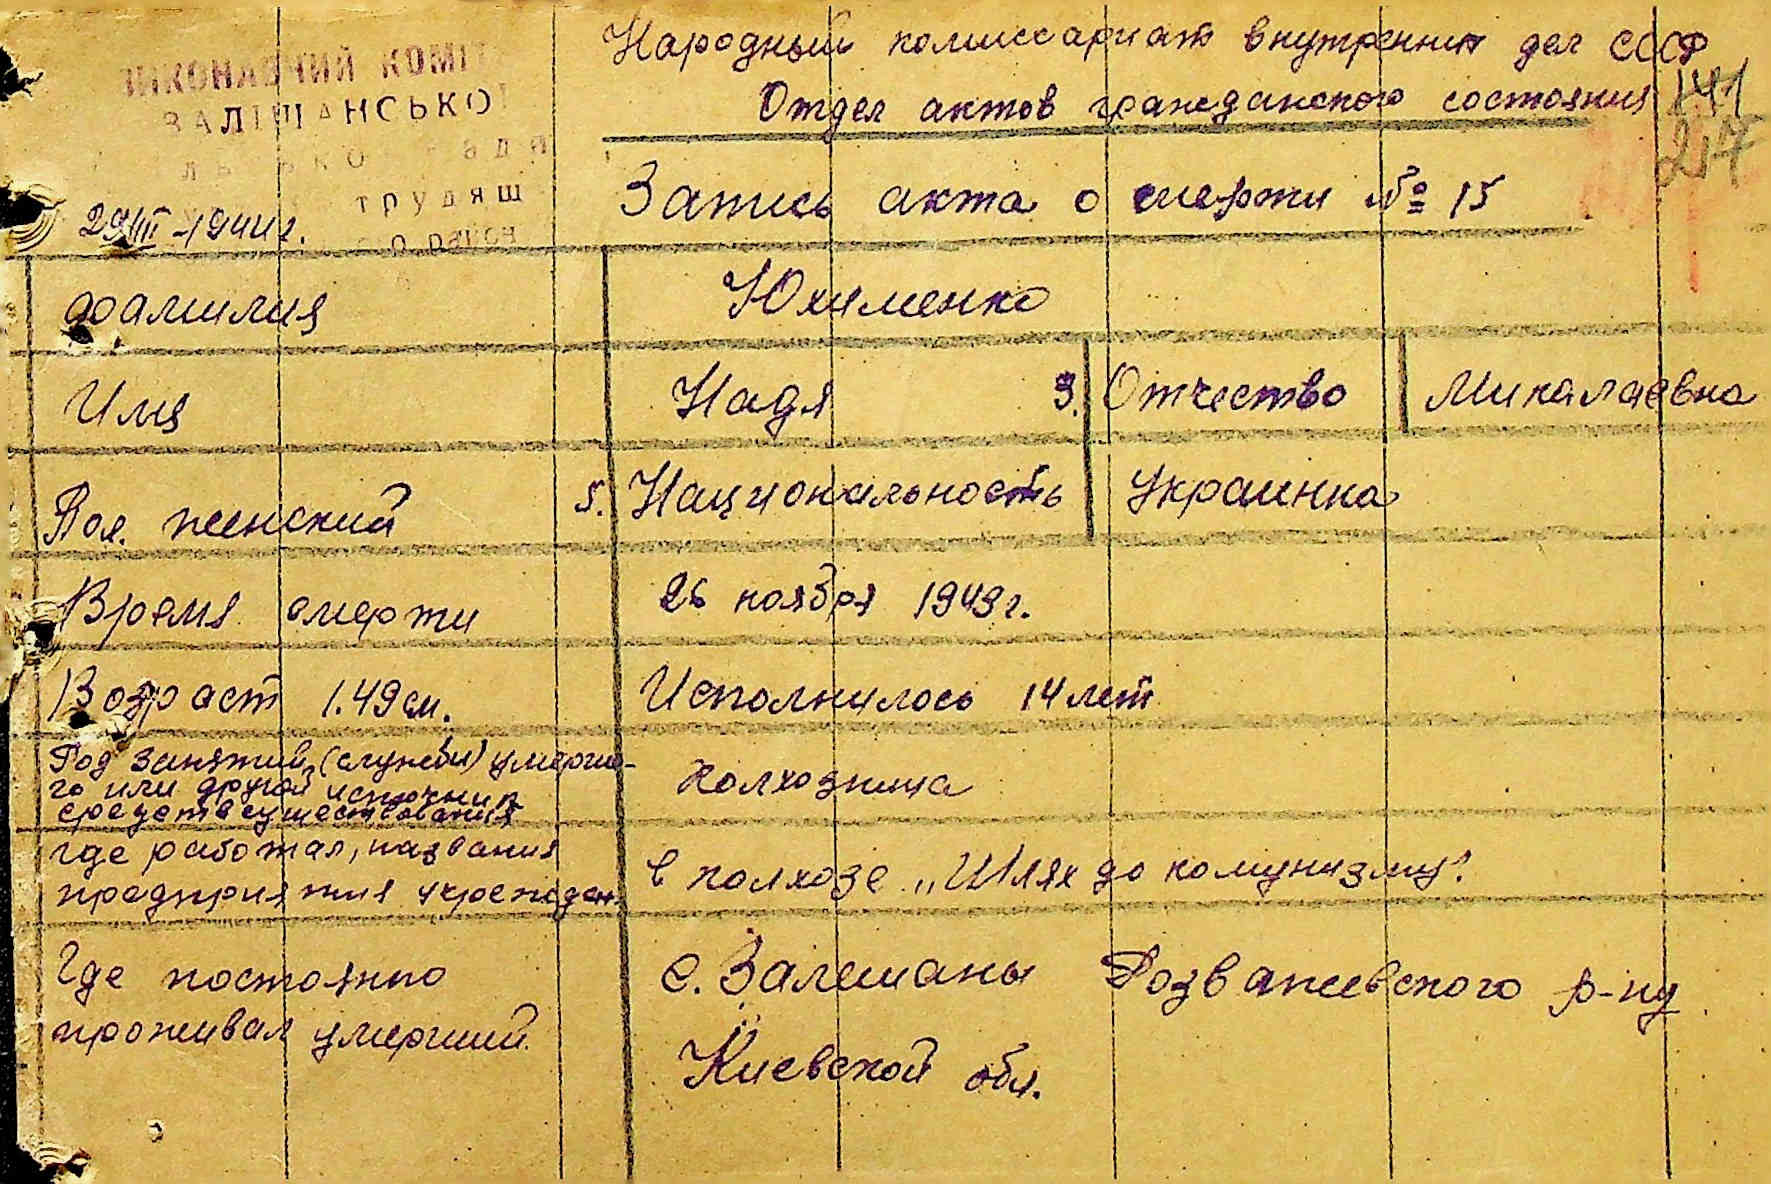 ВИКОНАВЧИЙ КОМІТ
ЗАЛІШАНСЬКОЇ
трудящ
район
29/III-1944 г.
Народный комиссариат внутренних дел СССР
Отдел актов гражданского состояния
141
217
Запись акта о смерти № 15
Фамилия Юхименко
Имя Надя 3. Отчество Микалаевна
Пол. женский 5. Национальность украинка
Время смерти 26 ноября 1943 г.
Возраст 1.49 см. Исполнилось 14 лет
Род занятий, (службы) умерше-
го или другой источник
средств существования
Колхозница
где работал, названия
предприятия учрежден.
в колхозе „Шлях до комунизму".
Где постоянно
проживал умерший.
с. Залешаны Розважевского р-ну
Киевской обл.